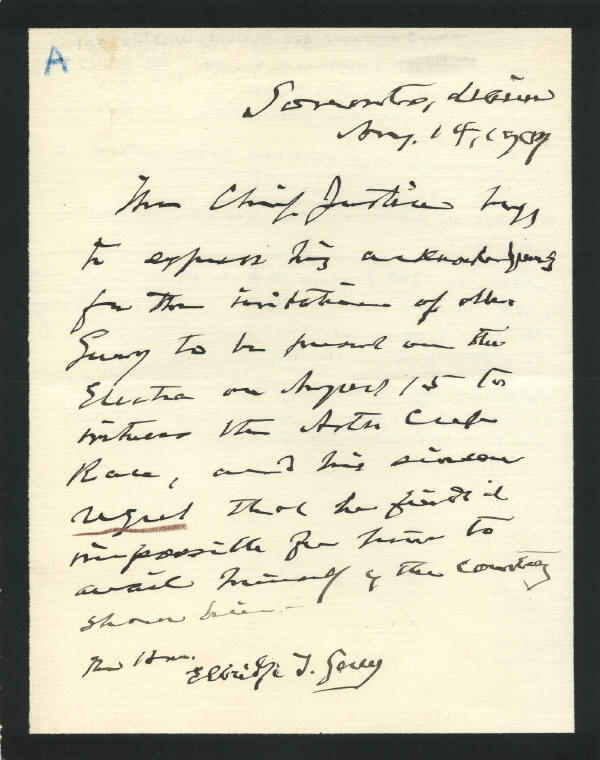 A
Sorrento, Maine
Aug. 14, 190
The Chief Justice begs
to express his acknowledgments
for the invitation of
Gerry to be present on the
Electra on August 15 to
witness the Astor Cup
Race, and his sincere
regret that he finds it
impossible for him to
avail himself of the courtesy
shown him.
The Hon.
Elbridge T. Gerry